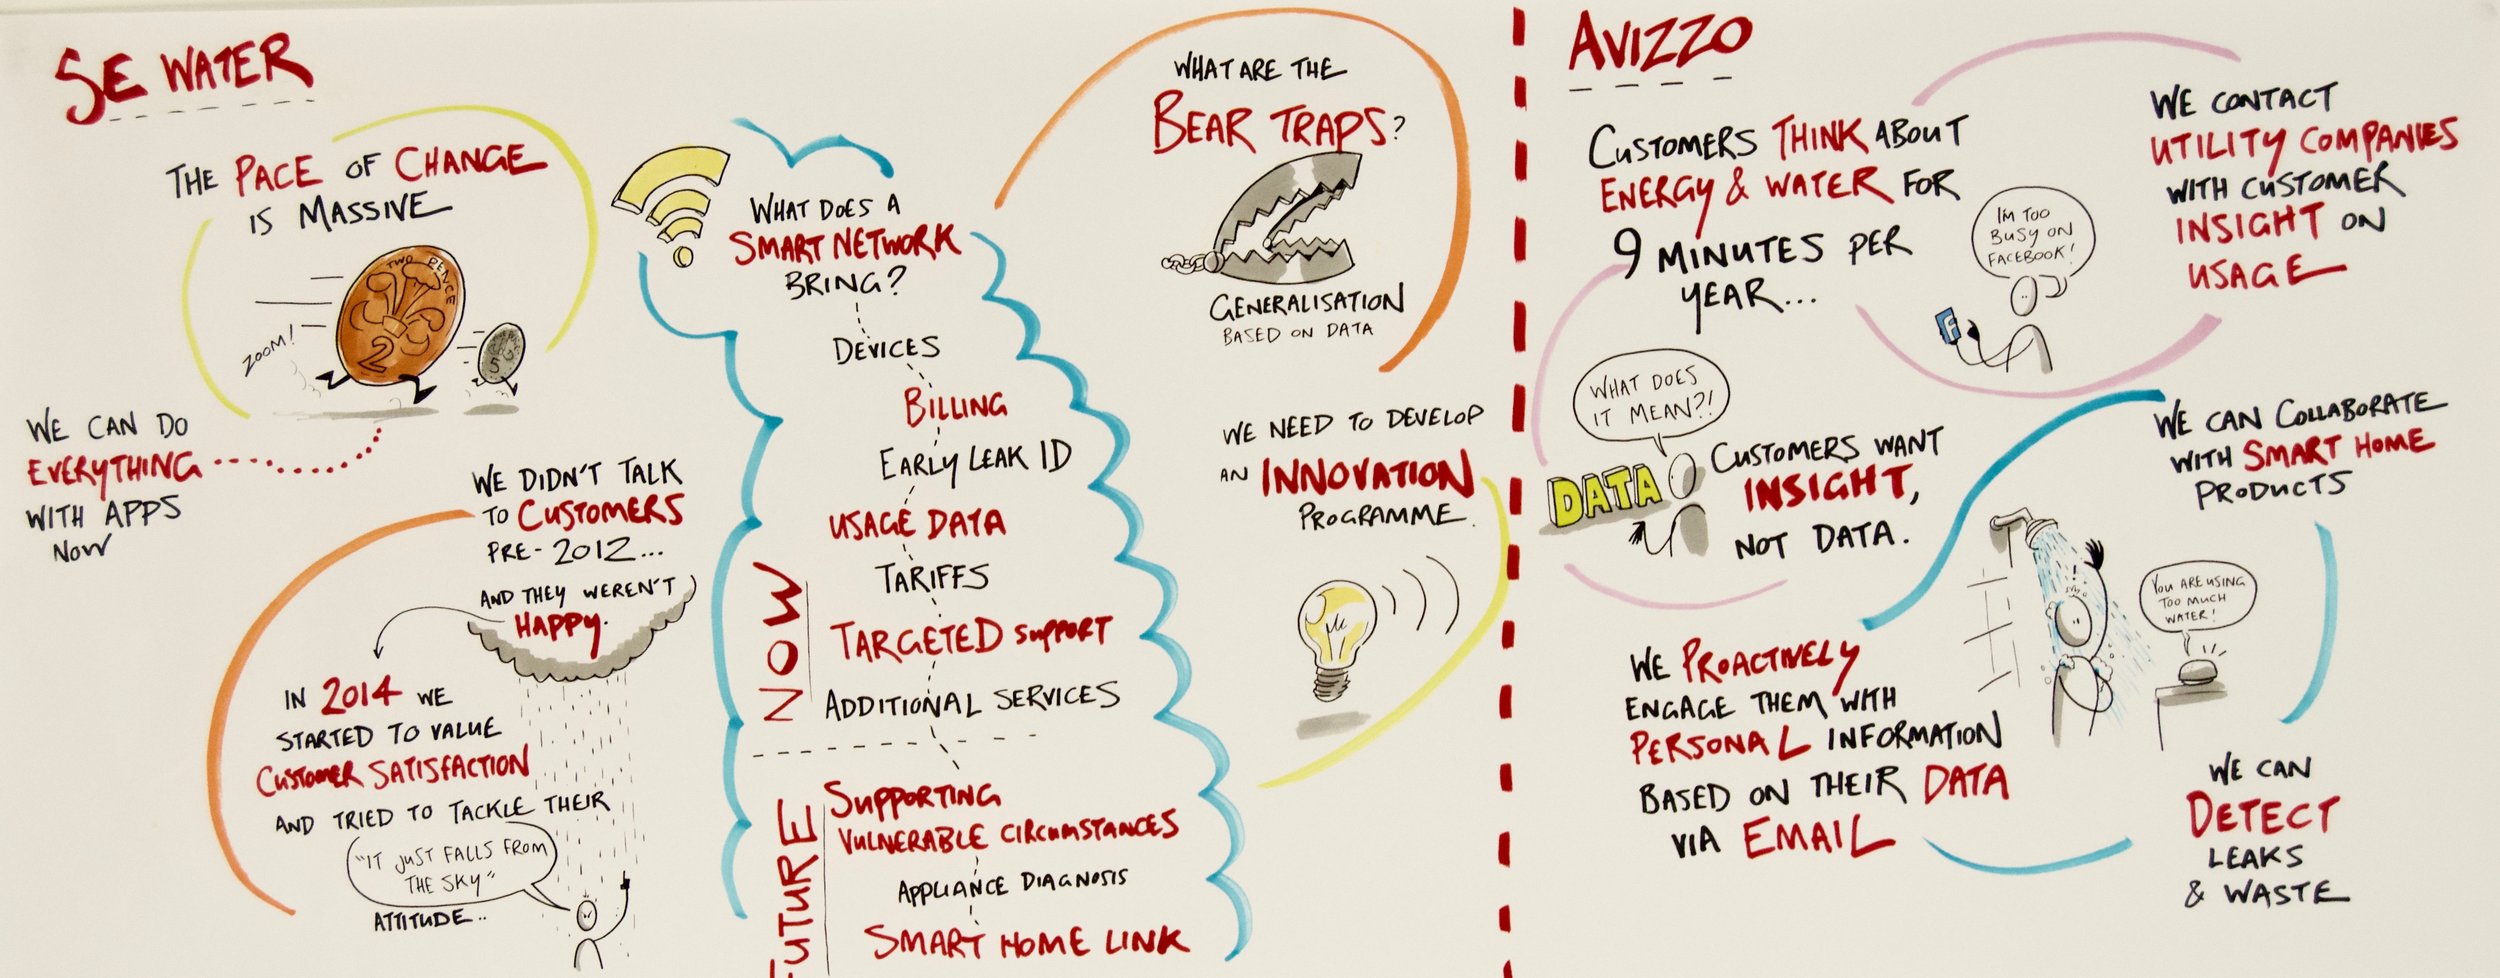 SE WATER
THE PACE OF CHANGE
IS MASSIVE
TWO PENCE
2
5
ZOOM!
WE CAN DO
EVERYTHING
WITH APPS
NOW
WE DIDN'T TALK
TO CUSTOMERS
PRE-2012...
AND THEY WEREN'T
HAPPY.
IN 2014 WE
STARTED TO VALUE
CUSTOMER SATISFACTION
AND TRIED TO TACKLE THEIR
"IT JUST FALLS FROM
THE SKY"
ATTITUDE..
WHAT DOES A
SMART NETWORK
BRING?
DEVICES
BILLING
EARLY LEAK ID
USAGE DATA
TARIFFS
TARGETED SUPPORT
ADDITIONAL SERVICES
NOW
FUTURE
SUPPORTING
VULNERABLE CIRCUMSTANCES
APPLIANCE DIAGNOSIS
SMART HOME LINK
WHAT ARE THE
BEAR TRAPS?
GENERALISATION
BASED ON DATA
WE NEED TO DEVELOP
AN INNOVATION
PROGRAMME.
AVIZZO
CUSTOMERS THINK ABOUT
ENERGY & WATER FOR
9 MINUTES PER
YEAR...
I'M TOO
BUSY ON
FACEBOOK!
F
WHAT DOES
IT MEAN?!
DATA
CUSTOMERS WANT
INSIGHT,
NOT DATA.
WE PROACTIVELY
ENGAGE THEM WITH
PERSONAL INFORMATION
BASED ON THEIR DATA
VIA EMAIL
WE CONTACT
UTILITY COMPANIES
WITH CUSTOMER
INSIGHT ON
USAGE
WE CAN COLLABORATE
WITH SMART HOME
PRODUCTS
YOU ARE USING
TOO MUCH
WATER!
WE CAN
DETECT
LEAKS
& WASTE